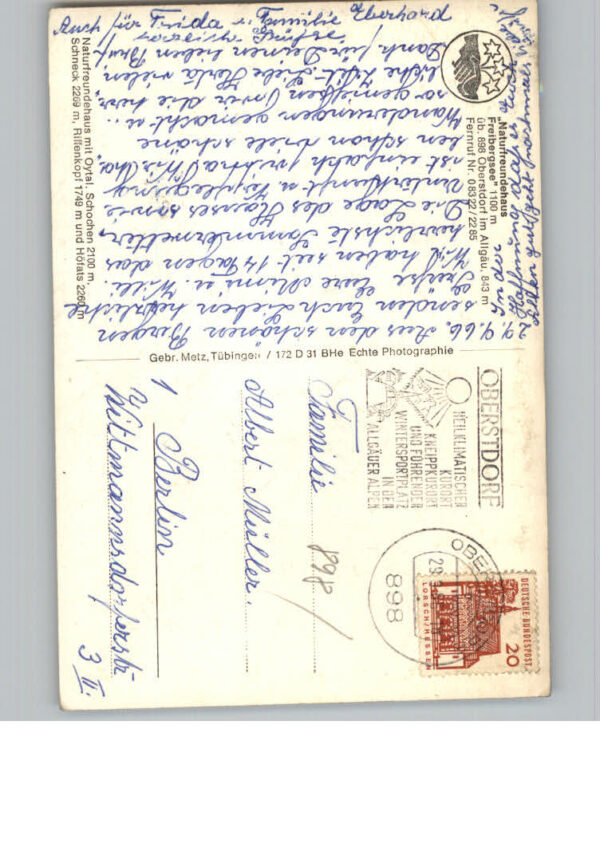 "Naturfreundehaus
Freibergsee" 1100 m
üb. 898 Oberstdorf im Allgäu, 843 m
Fernruf Nr. 08322/2285
29.9.66. Aus den schönen Bergen
senden Euch Lieben herzliche
Grüße Eure Mimi u. Willi.
Wir haben seit 14 Tagen das
herrlichste Sommerwetter,
Die Lage des Hauses sowie
Unterkunft u. Verpflegung
ist einfach prima. Wir ha-
ben schon viele schöne
Wanderungen gemacht u.
so genießen wir die herr-
liche Zeit. Liebe Herta vielen
Dank für Deinen lieben Brief.
Naturfreundehaus mit Oytal. Schochen 2100 m,
Schneck 2269 m, Riffenkopf 1749 m und Höfats 2260 m
Gebr. Metz, Tübingen / 172 D 31 BHe Echte Photographie
OBERSTDORF
HEILKLIMATISCHER
KURORT
KNEIPPKURORT
UND FÜHRENDER
WINTERSPORTPLATZ
IN DEN
ALLGÄUER ALPEN
898
DEUTSCHE BUNDESPOST
20
LORSCH/HESSEN
Familie
898
Albert Müller.
1 Berlin
Wittmannsdorferstr.
3 II.